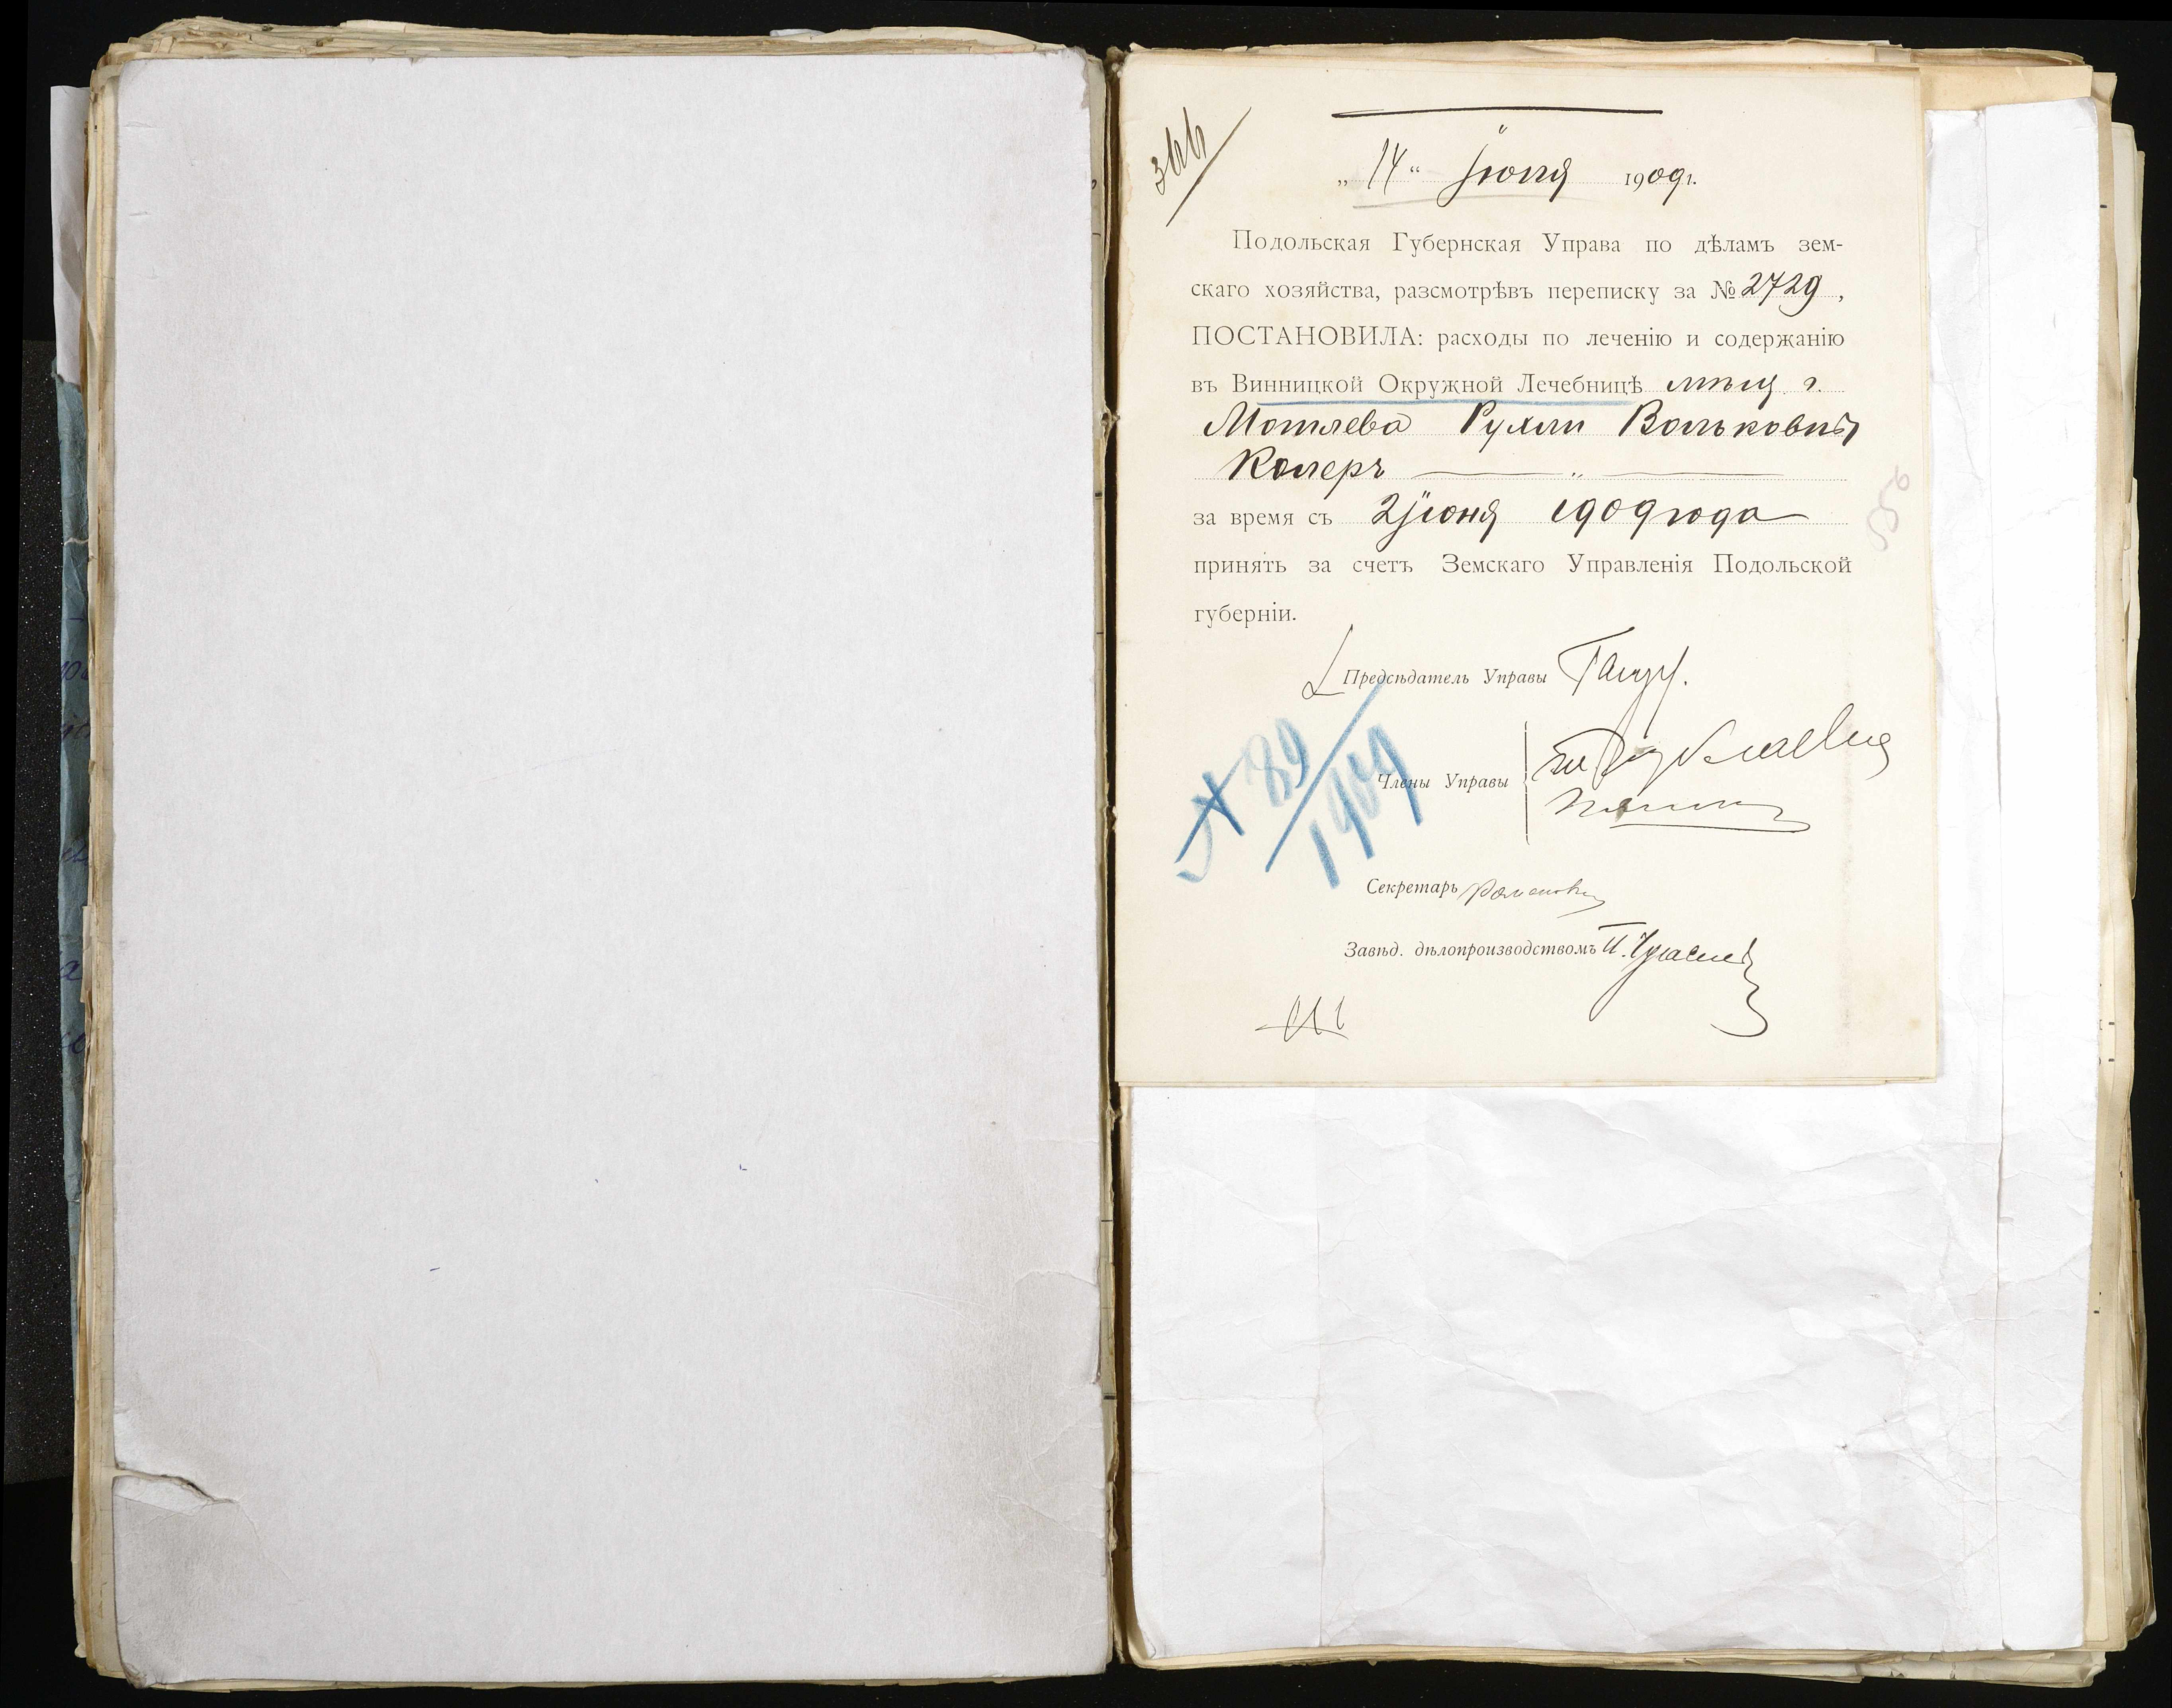 „ 14 “ Іюля 1909 г.
Подольская Губернская Управа по дѣламъ зем-
скаго хозяйства, разсмотрѣвъ переписку за № 2729,
ПОСТАНОВИЛА: расходы по леченію и содержанію
въ Винницкой Окружной Лечебницѣ мѣщ. г.
Могилева Рухли Вольковны
Колеръ
за время съ 2 Іюня 1909 года
принять за счетъ Земскаго Управленія Подольской
губерніи.
Предсѣдатель Управы
Члены Управы
№ 89
1909
Секретарь
Завѣд. дѣлопроизводствомъ